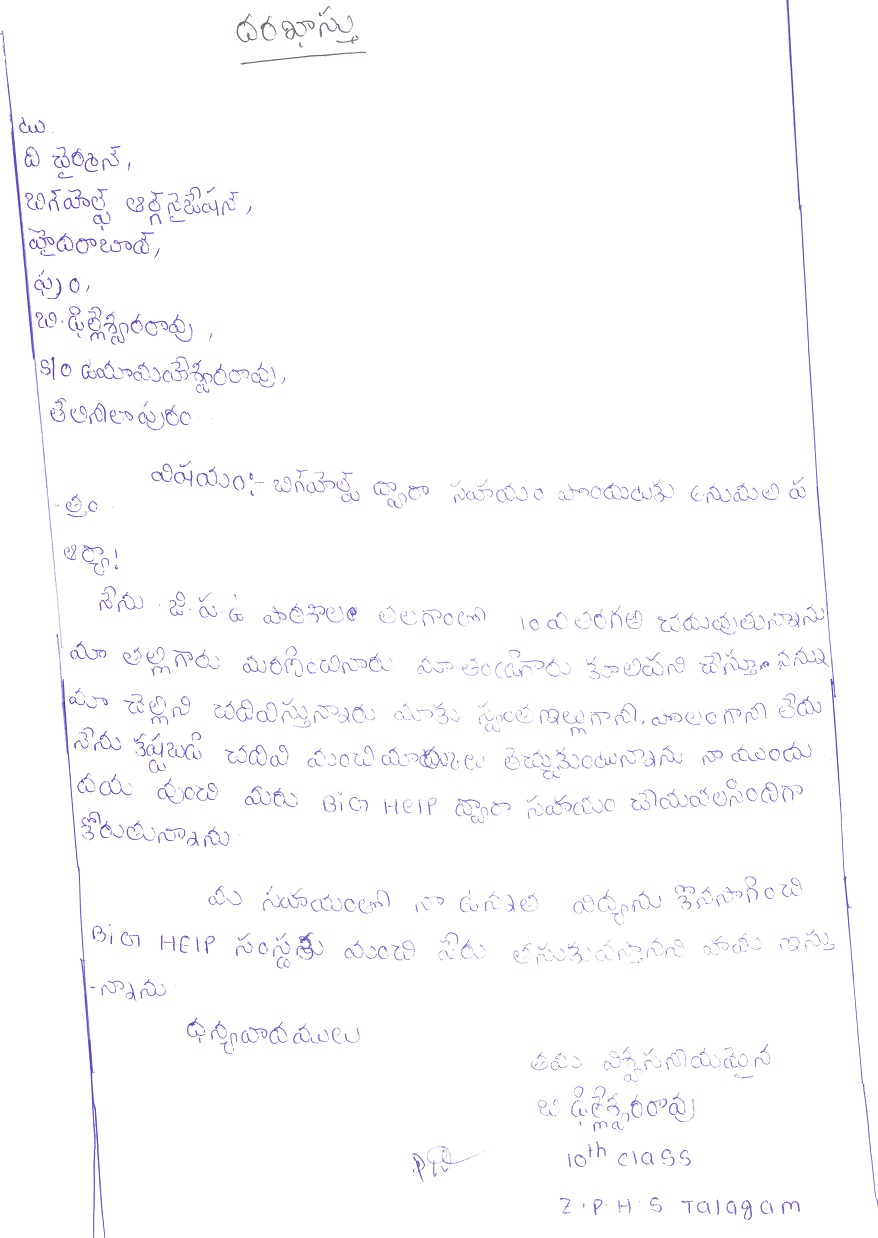 దరఖాస్తు
టు.
ది ఛైర్మెన్,
బిగ్‌హెల్ప్ ఆర్గ్‌నైజేషన్,
హైదరాబాద్,
ఫ్రం,
బి.ఢిల్లేశ్వరరావు,
S/o ఉమామహేశ్వరరావు,
తేలినీలాపురం
విషయం:- బిగ్‌హెల్ప్ ద్వారా సహాయం పొందుటకు అనుమతి ప
-త్రం
ఆర్యా!
నేను జి.ప.ఉ పాఠశాల తలగాంలో 10వ తరగతి చదువుతున్నాను
మా తల్లిగారు మరణించినారు మా తండ్రిగారు కూలిపని చేస్తూ నన్ను
మా చెల్లిని చదివిస్తున్నారు మాకు స్వంత ఇల్లుగాని, పొలంగాని లేదు
నేను కష్టబడి చదివి మంచిమార్కులు తెచ్చుకుంటున్నాను నా యందు
దయ వుంచి మీరు BiG HElP ద్వారా సహాయం చేయవలసిందిగా
కోరుతున్నాను
మీ సహాయంతో నా ఉన్నత విద్యను కొనసాగించి
BiG HElP సంస్థకు మంచి పేరు తీసుకువస్తానని హామీ ఇస్తు
-న్నాను
ధన్యవాదములు
తమ విశ్వసనీయమైన
బి ఢిల్లేశ్వరరావు
10th class
Z.P.H.S Talagam